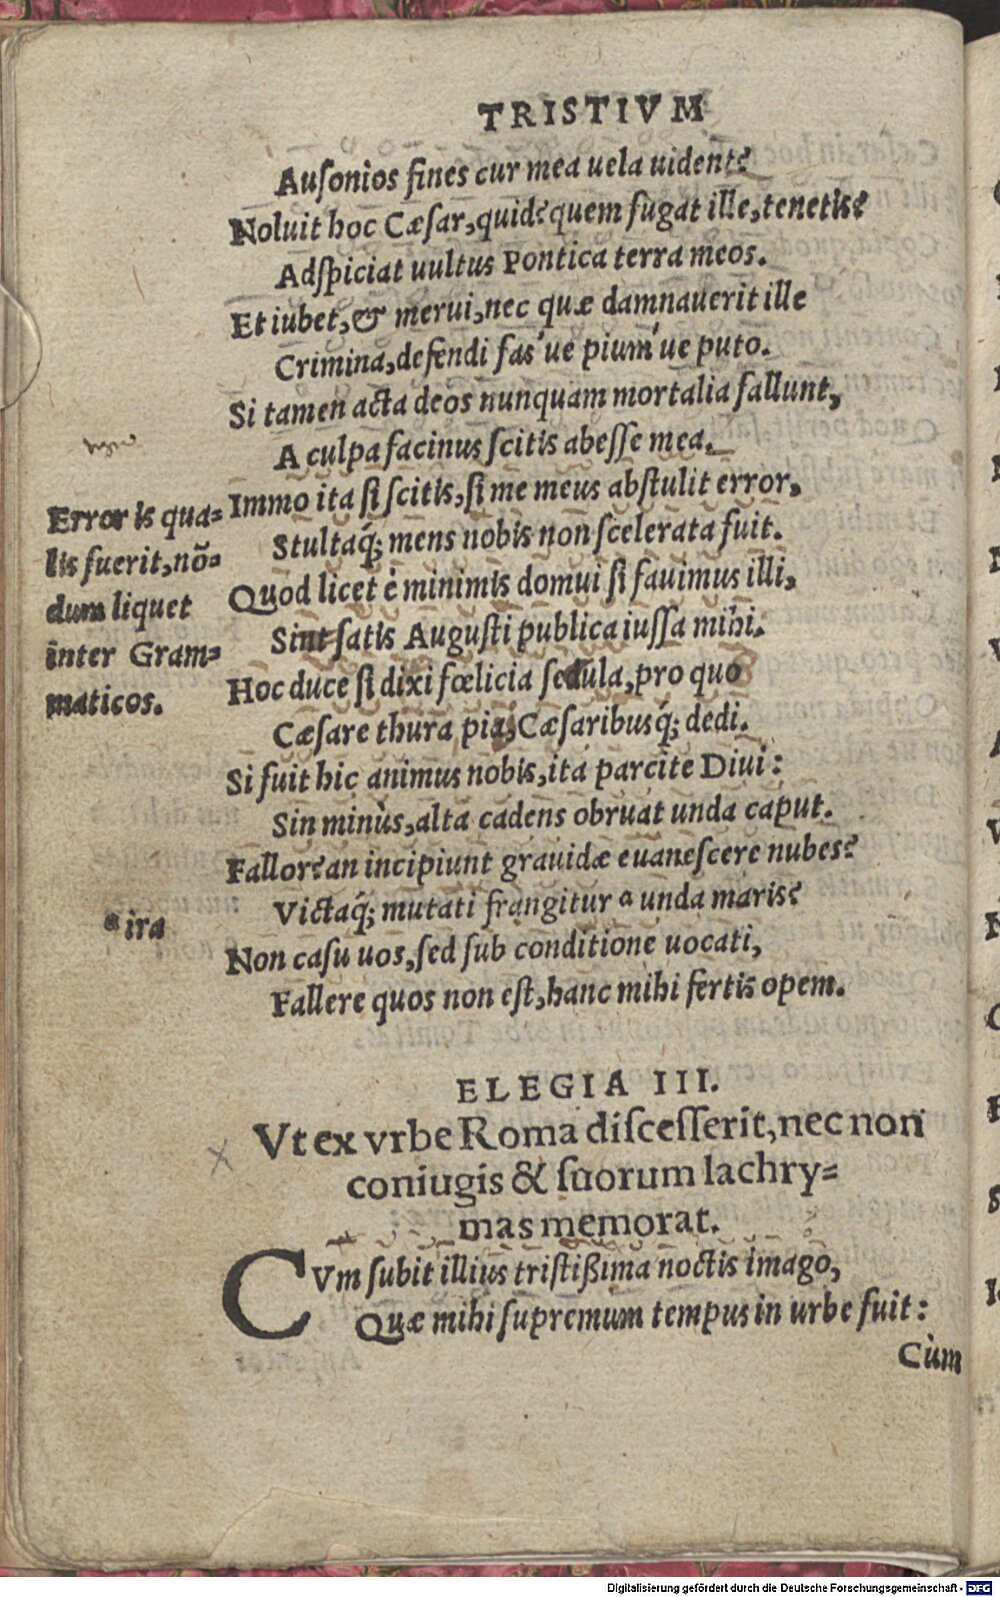 TRISTIVM
Auſonios fines cur mea uela uident?
Noluit hoc Cæſar, quid? quem fugat ille, tenetis?
Adſpiciat uultus Pontica terra meos.
Et iubet, & merui, nec quæ damnauerit ille
Crimina, defendi fas'ue pium'ue puto.
Si tamen acta deos nunquam mortalia fallunt,
A culpa facinus ſcitis abeſſe mea.
Immo ita ſi ſcitis, ſi me meus abſtulit error,
Stultaq́; mens nobis non ſcelerata fuit.
Quod licet è minimis domui ſi fauimus illi,
Sint ſatis Auguſti publica iuſſa mihi.
Hoc duce ſi dixi fœlicia ſedula, pro quo
Cæſare thura pia, Cæſaribusq́; dedi.
Si fuit hic animus nobis, ita parcite Diui:
Sin minùs, alta cadens obruat unda caput.
Fallor? an incipiunt grauidæ euaneſcere nubes?
Victaq́; mutati frangitur a unda maris?
Non caſu uos, ſed ſub conditione uocati,
Fallere quos non eſt, hanc mihi fertis opem.
Error is qua=
lis fuerit, nõ=
dum liquet
inter Gram=
maticos.
a ira
ELEGIA III.
Vt ex vrbe Roma diſceſſerit, nec non
coniugis & ſuorum lachry=
mas memorat.
CVm ſubit illius triſtißima noctis imago,
Quæ mihi ſupremum tempus in urbe fuit:
Cùm
Digitalisierung gefördert durch die Deutsche Forschungsgemeinschaft - DFG